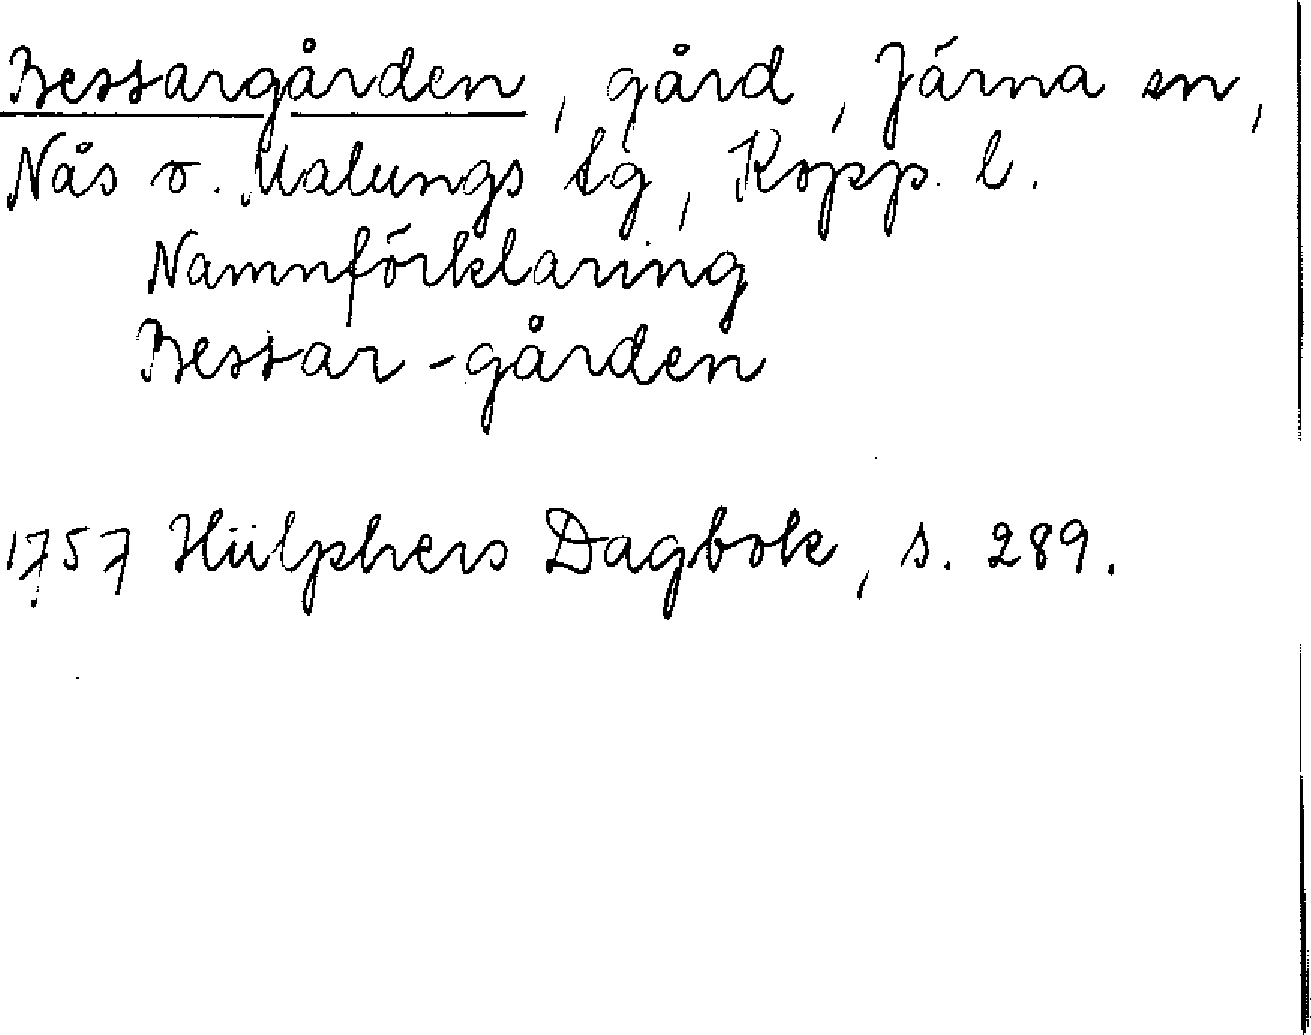 Bessargården, gård, Järna sn,
Nås o. Malungs tg, Kopp. l.
Namnförklaring
Bessar-gården
1757 Hülphers Dagbok, s. 289.